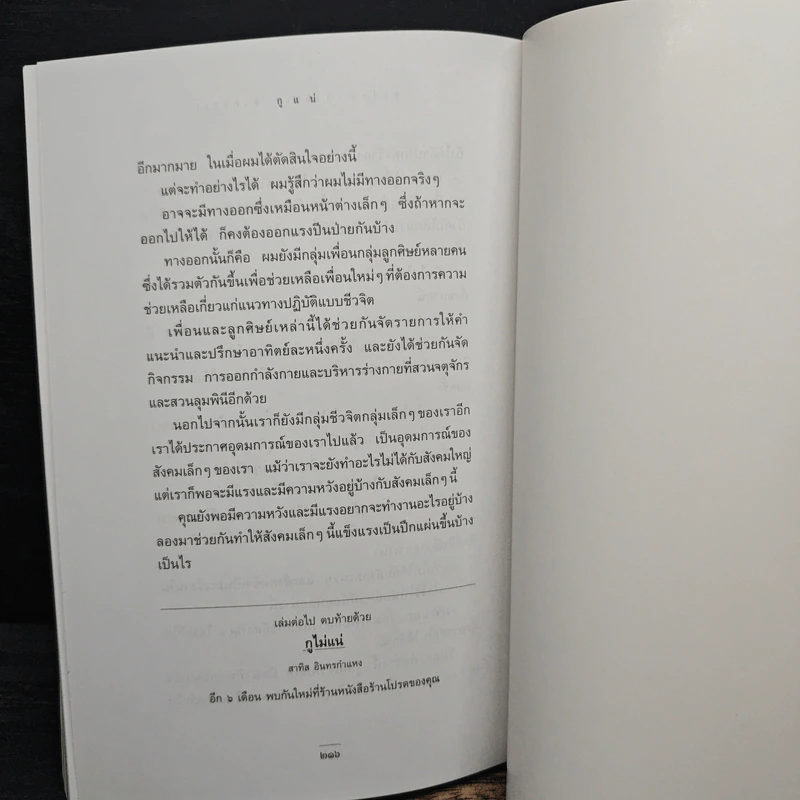 กูแน่
อีกมากมาย ในเมื่อผมได้ตัดสินใจอย่างนี้
แต่จะทำอย่างไรได้ ผมรู้สึกว่าผมไม่มีทางออกจริงๆ
อาจจะมีทางออกซึ่งเหมือนหน้าต่างเล็กๆ ซึ่งถ้าหากจะ
ออกไปให้ได้ ก็คงต้องออกแรงปีนป่ายกันบ้าง
ทางออกนั้นก็คือ ผมยังมีกลุ่มเพื่อนกลุ่มลูกศิษย์หลายคน
ซึ่งได้รวมตัวกันขึ้นเพื่อช่วยเหลือเพื่อนใหม่ๆ ที่ต้องการความ
ช่วยเหลือเกี่ยวแก่แนวทางปฏิบัติแบบชีวจิต
เพื่อนและลูกศิษย์เหล่านี้ได้ช่วยกันจัดรายการให้คำ
แนะนำและปรึกษาอาทิตย์ละหนึ่งครั้ง และยังได้ช่วยกันจัด
กิจกรรม การออกกำลังกายและบริหารร่างกายที่สวนจตุจักร
และสวนลุมพินีอีกด้วย
นอกไปจากนั้นเราก็ยังมีกลุ่มชีวจิตกลุ่มเล็กๆ ของเราอีก
เราได้ประกาศอุดมการณ์ของเราไปแล้ว เป็นอุดมการณ์ของ
สังคมเล็กๆ ของเรา แม้ว่าเราจะยังทำอะไรไม่ได้กับสังคมใหญ่
แต่เราก็พอจะมีแรงและมีความหวังอยู่บ้างกับสังคมเล็กๆ นี้
คุณยังพอมีความหวังและมีแรงอยากจะทำงานอะไรอยู่บ้าง
ลองมาช่วยกันทำให้สังคมเล็กๆ นี้แข็งแรงเป็นปึกแผ่นขึ้นบ้าง
เป็นไร
เล่มต่อไป ตบท้ายด้วย
กูไม่แน่
สาทิส อินทรกำแหง
อีก ๖ เดือน พบกันใหม่ที่ร้านหนังสือร้านโปรดของคุณ
๒๑๖